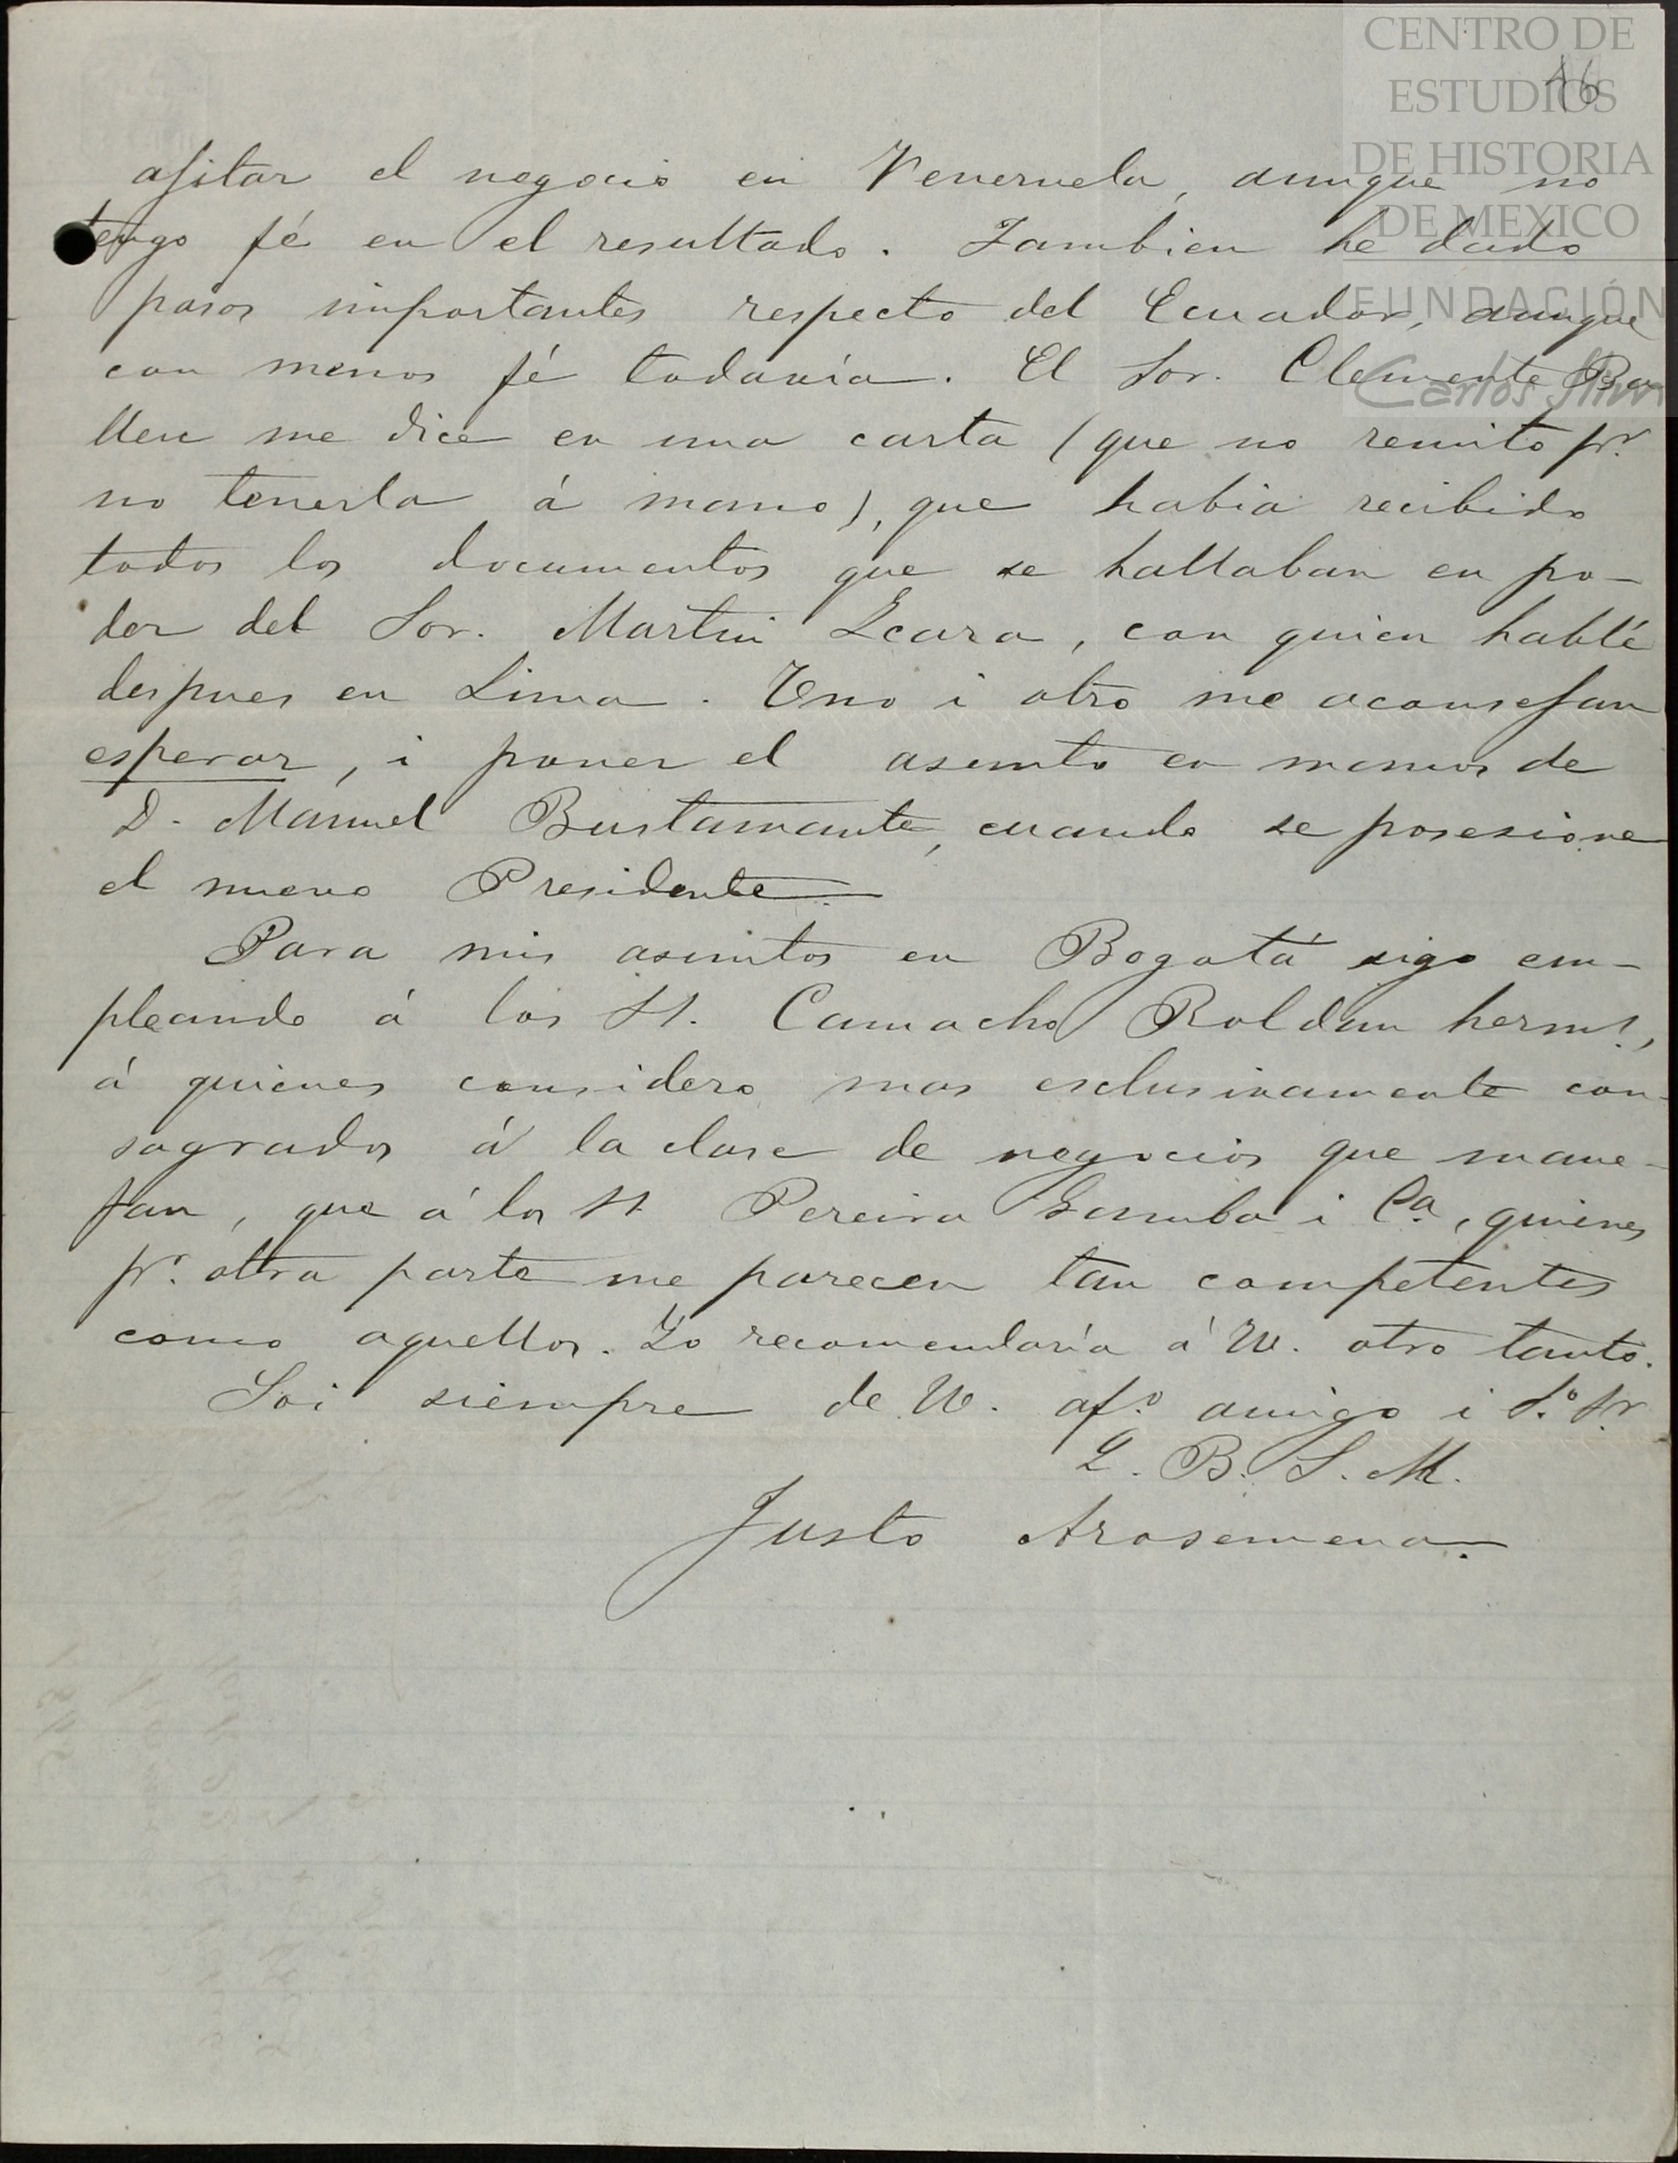 CENTRO DE
ESTUDIOS
DE HISTORIA
DE MEXICO
FUNDACIÓN
Carlos Slim
16
ajitar el negocio en Venezuela, aunque no
tengo fé en el resultado. Tambien he dado
pasos importantes respecto del Ecuador, aunque
con menos fé todavía. El Sor. Clemente Ba
llen me dice en una carta (que no remito pr.
no tenerla á mano), que habia recibido
todos los documentos que se hallaban en po-
der del Sor. Martin Icaza, con quien hablé
despues en Lima. Uno i otro me aconsejan
esperar, i poner el asunto en manos de
D. Manuel Bustamante, cuando se posesione
el nuevo Presidente.
Para mis asuntos en Bogotá sigo em-
pleando á los SS. Camacho Roldan herms.,
á quienes considero mas esclusivamente con-
sagrados á la clase de negocios que mane-
jan, que á los SS. Pereira Gamba i Ca., quienes
pr. otra parte me parecen tan competentes
como aquellos. Yo recomendaría á U. otro tanto.
Soi siempre de U. afo. amigo i So. Sr.
Q. B. S. M.
Justo Arosemena.